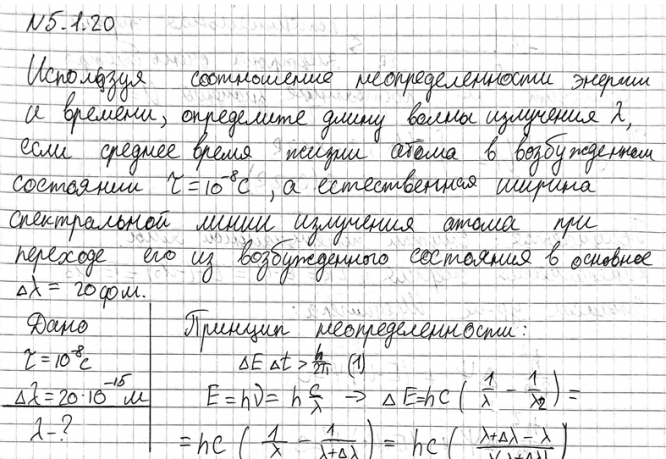 N5.1.20
Используя соотношение неопределенности энергии
и времени, определите длину волны излучения λ,
если среднее время жизни атома в возбужденном
состоянии τ = 10⁻⁸с, а естественная ширина
спектральной линии излучения атома при
переходе его из возбужденного состояния в основное
Δλ = 20фм.
Дано
τ = 10⁻⁸с
Δλ = 20·10⁻¹⁵ м
λ - ?
Принцип неопределенности:
ΔE Δt > h/2π (1)
E = hν = h c/λ → ΔE = hc (1/λ - 1/λ₂) =
= hc (1/λ - 1/(λ+Δλ)) = hc ((λ+Δλ-λ)/(λ(λ+Δλ)))